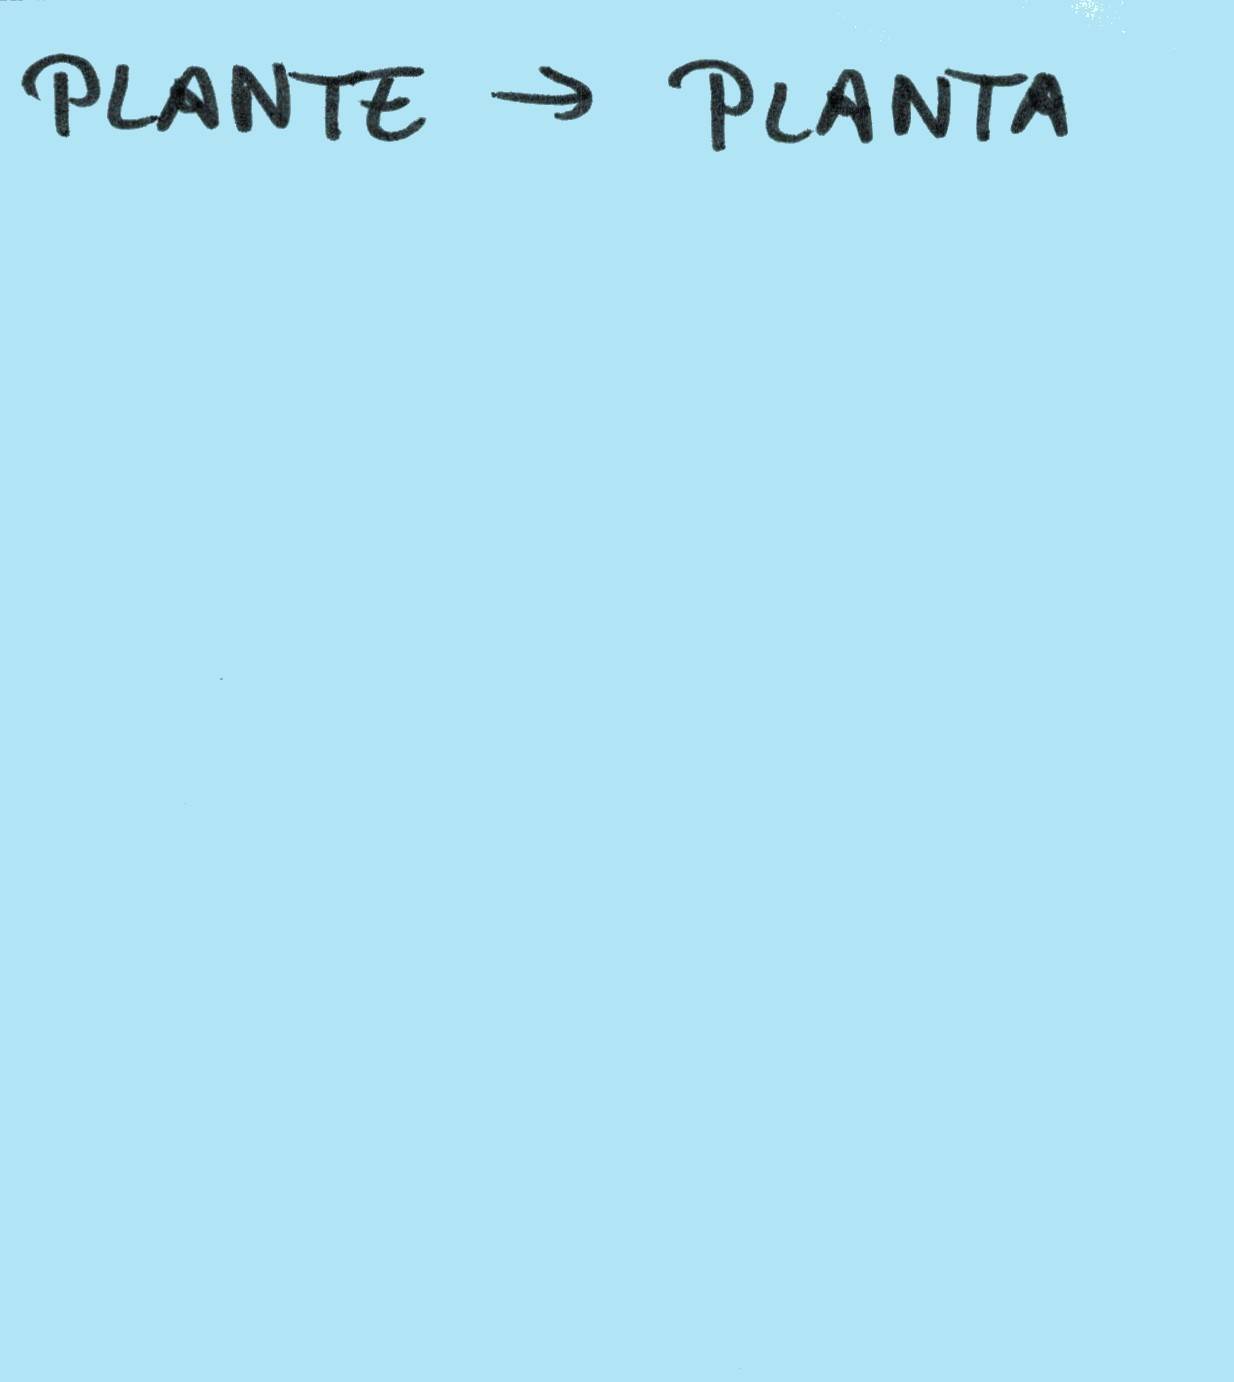 PLANTE → PLANTA